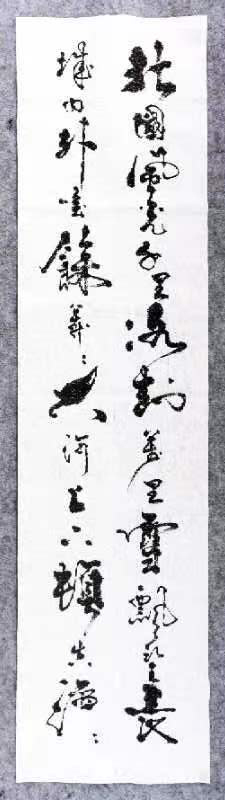 北國風光千里冰封萬里雪飄望長
城內外惟餘莽〻大河上下頓失滔〻